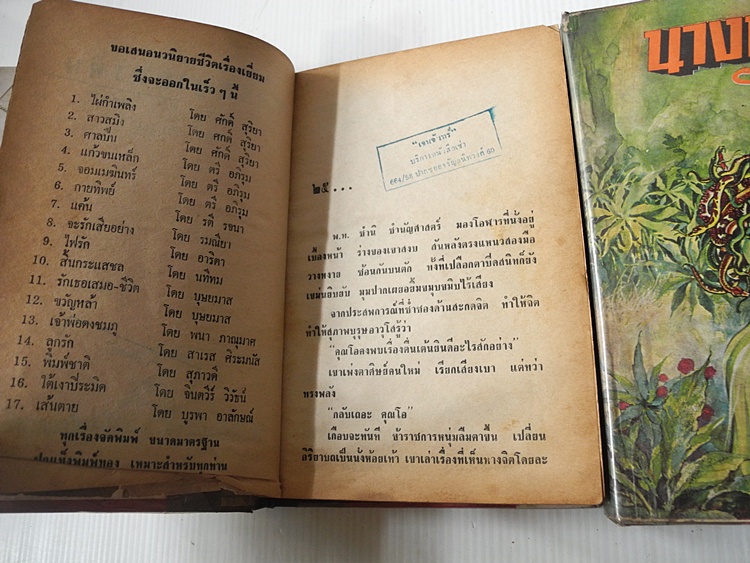 ขอเสนอนวนิยายชีวิตเรื่องเยี่ยม
ซึ่งจะออกในเร็ว ๆ นี้
1. ไผ่กำเพลิง โดย ศักดิ์ สุริยา
2. สาวสมิง โดย ศักดิ์ สุริยา
3. ศาลปืน โดย ศักดิ์ สุริยา
4. แก้วขนเหล็ก โดย ตรี อภิรุม
5. จอมเมฆินทร์ โดย ตรี อภิรุม
6. กายทิพย์ โดย ตรี อภิรุม
7. แค้น โดย รตี รจนา
8. จะรักเสียอย่าง โดย รมณียา
9. ไฟรัก โดย อาริตา
10. สิ้นกระแสชล โดย นทีทม
11. รักเธอเสมอ-ชีวิต โดย บุษยมาส
12. ขวัญหล้า โดย บุษยมาส
13. เจ้าพ่อดงชมภู โดย พนา ภาณุมาศ
14. ลูกรัก โดย สาเรส ศิระมนัส
15. พิมพ์ชาติ โดย สุภาวดี
16. ใต้เงาปิระมิด โดย จินตวีร์ วิวัธน์
17. เส้นตาย โดย บูรพา อาลักษณ์
ทุกเรื่องจัดพิมพ์ ขนาดมาตรฐาน
ปกแข็งพิมพ์ทอง เหมาะสำหรับทุกท่าน
บริการหนังสือเช่า
๒๕...
พ.ท. ชำนิ ชำนัญศาสตร์ มองโอฬารที่นั่งอยู่
เบื้องหน้า ร่างของเขาสงบ ลำหลังตรงแหนวสองมือ
วางหงาย ซ้อนกันบนตัก ทั้งที่เปลือกตาปิดสนิทก็ยัง
เขม่นยิบยับ มุมปากเผยอขมุบขมิบไร้เสียง
จากประสพการณ์ที่ช่ำช่องด้านสะกดจิต ทำให้จิต
ทำให้สุภาพบุรุษอาวุโสรู้ว่า
“คุณโอคงพบเรื่องตื่นเต้นยินดีอะไรสักอย่าง”
เขาเพ่งตาศิษย์คนใหม่ เรียกเสียงเบา แต่ทว่า
ทรงพลัง
“กลับเถอะ คุณโอ”
เกือบจะทันที ข้าราชการหนุ่มลืมตาขึ้น เปลี่ยน
อิริยาบถเป็นนั่งห้อยเท้า เขาเล่าเรื่องที่เห็นทางจิตโดยละ
นาง